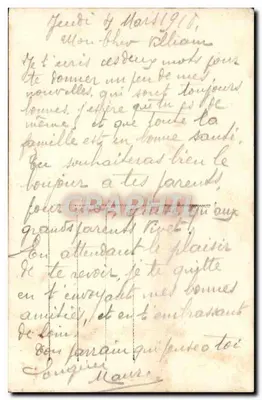 Jeudi 4 Mars 1918,
Mon cher William
Je t'écris ces deux mots pour
te donner un peu de mes
nouvelles, qui sont toujours
bonnes, j'espère qu'il en de
même, et que toute la
famille est en bonne santé.
Tu souhaiteras bien le
bonjour à tes parents,
qu'aux
grands parents
En attendant le plaisir
de te revoir, je te quitte
en t'envoyant mes bonnes
amitiés, et en t'embrassant
de loin.
Ton parrain qui pense à toi